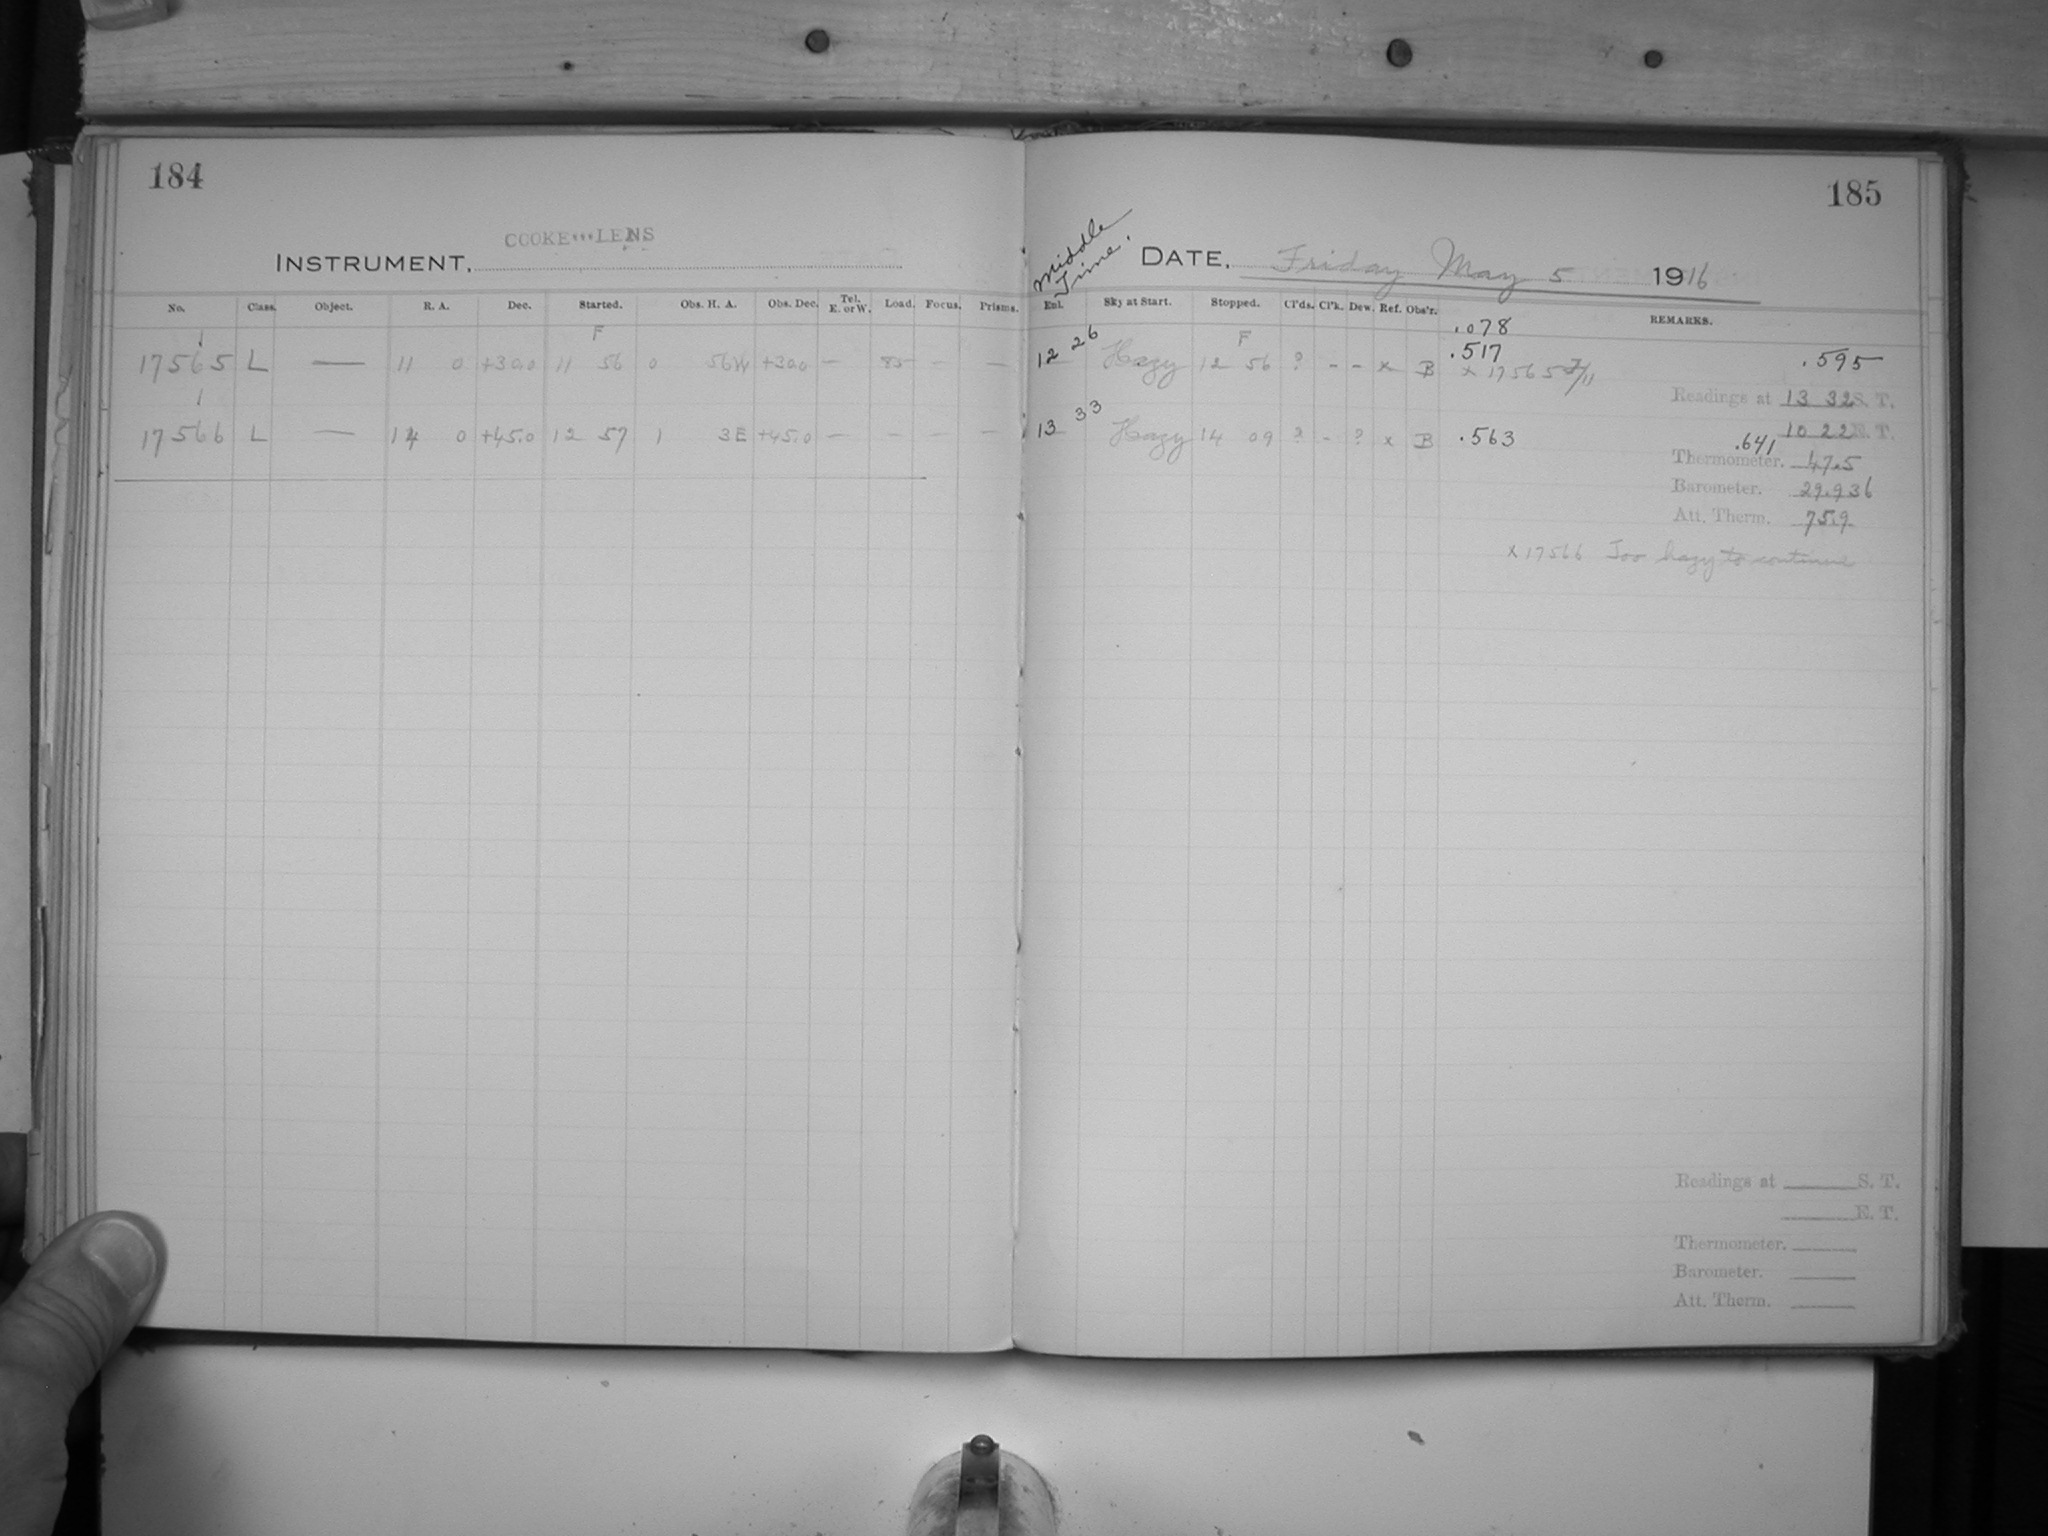 184
COOKE LENS
INSTRUMENT,
No. Class. Object. R. A. Dec. Started. Obs. H. A. Obs. Dec. Tel. E. or W. Load. Focus. Prisms.
1 F
17565 L — 11 0 +30.0 11 56 0 56W +30.0 — 85 — —
1
17566 L — 14 0 +45.0 12 57 1 3E +45.0 — — — —
185
Middle Time.
DATE, Friday May 5 1916
Enl. Sky at Start. Stopped. Cl'ds. Cl'k. Dew. Ref. Obs'r. REMARKS.
F .078
12 26 Hazy 12 56 ? - - x B .517 .595
x 17565
Readings at 13 32 S. T.
13 33 Hazy 14 09 ? - ? x B .563 .641
10 22 E. T.
Thermometer. 47.5
Barometer. 29.936
Att. Therm. 75.9
x 17566 Too hazy to continue
Readings at S. T.
E. T.
Thermometer.
Barometer.
Att. Therm.